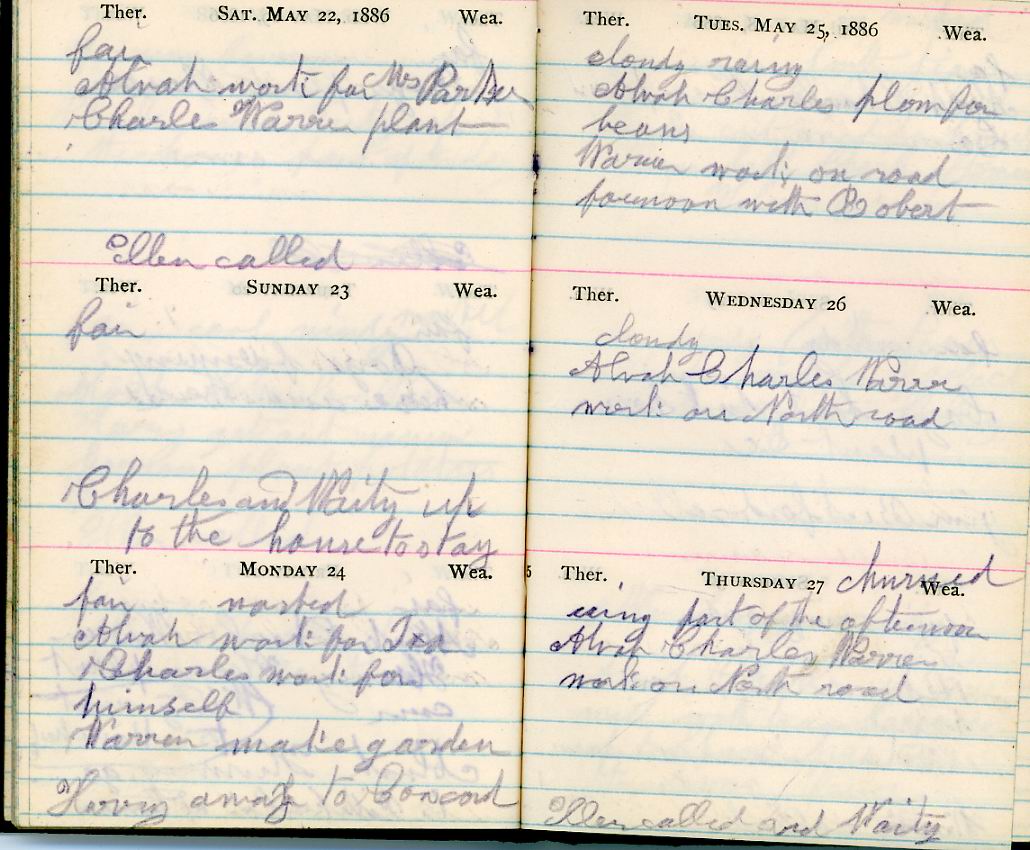 Ther. SAT. MAY 22, 1886 Wea.
fair
Alvah work for Mrs Parker
Charles Warren plant
Ellen called
Ther. SUNDAY 23 Wea.
fair
Charles and Waity up
to the house to stay
Ther. MONDAY 24 Wea.
fair washed
Alvah work for Ira
Charles work for
himself
Warren make garden
away to Concord
Ther. TUES. MAY 25, 1886 Wea.
cloudy
Alvah Charles plow for
beans
Warren work on road
forenoon with Robert
Ther. WEDNESDAY 26 Wea.
cloudy
Alvah Charles Warren
work on North road
Ther. THURSDAY 27 Wea.
churned
part of the afternoon
Alvah Charles Warren
work on North road
Ellen called and Waity